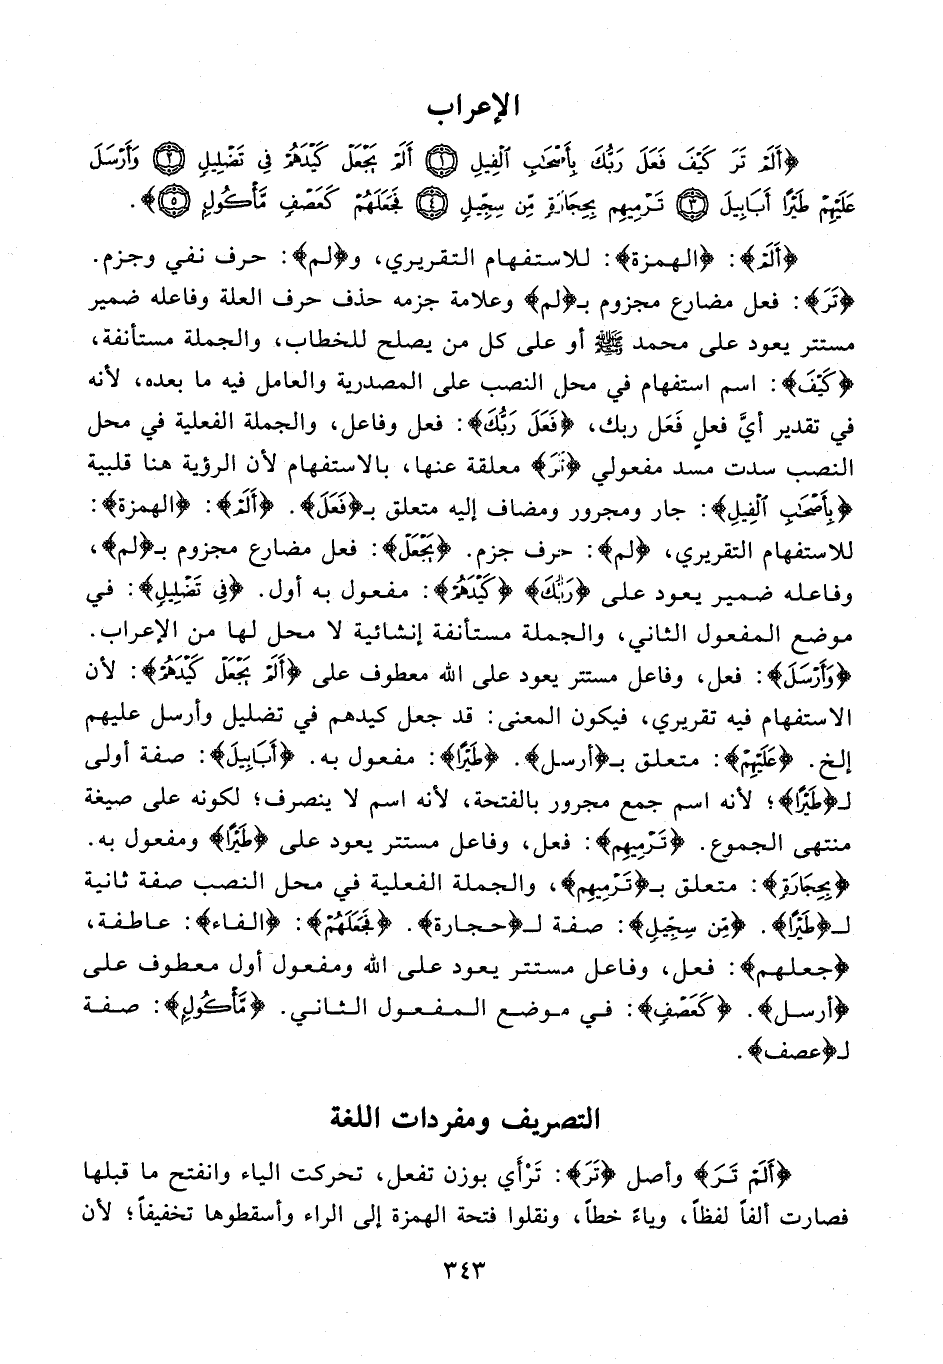 الإعراب
﴿أَلَمْ تَرَ كَيْفَ فَعَلَ رَبُّكَ بِأَصْحَٰبِ ٱلْفِيلِ ۝١ أَلَمْ يَجْعَلْ كَيْدَهُمْ فِى تَضْلِيلٍ ۝٢ وَأَرْسَلَ
عَلَيْهِمْ طَيْرًا أَبَابِيلَ ۝٣ تَرْمِيهِم بِحِجَارَةٍ مِّن سِجِّيلٍ ۝٤ فَجَعَلَهُمْ كَعَصْفٍ مَّأْكُولٍ ۝٥﴾.
﴿أَلَمْ﴾: ﴿الهمزة﴾: للاستفهام التقريري، و﴿لم﴾: حرف نفي وجزم.
﴿تَرَ﴾: فعل مضارع مجزوم بـ﴿لم﴾ وعلامة جزمه حذف حرف العلة وفاعله ضمير
مستتر يعود على محمد ﷺ أو على كل من يصلح للخطاب، والجملة مستأنفة،
﴿كَيْفَ﴾: اسم استفهام في محل النصب على المصدرية والعامل فيه ما بعده، لأنه
في تقدير أيَّ فعلٍ فَعَل ربك، ﴿فَعَلَ رَبُّكَ﴾: فعل وفاعل، والجملة الفعلية في محل
النصب سدت مسد مفعولي ﴿تَرَ﴾ معلقة عنها، بالاستفهام لأن الرؤية هنا قلبية
﴿بِأَصْحَٰبِ ٱلْفِيلِ﴾: جار ومجرور ومضاف إليه متعلق بـ﴿فَعَلَ﴾. ﴿أَلَمْ﴾: ﴿الهمزة﴾:
للاستفهام التقريري، ﴿لم﴾: حرف جزم. ﴿يَجْعَلْ﴾: فعل مضارع مجزوم بـ﴿لم﴾،
وفاعله ضمير يعود على ﴿رَبُّكَ﴾ ﴿كَيْدَهُمْ﴾: مفعول به أول. ﴿فِى تَضْلِيلٍ﴾: في
موضع المفعول الثاني، والجملة مستأنفة إنشائية لا محل لها من الإعراب.
﴿وَأَرْسَلَ﴾: فعل، وفاعل مستتر يعود على الله معطوف على ﴿أَلَمْ يَجْعَلْ كَيْدَهُمْ﴾: لأن
الاستفهام فيه تقريري، فيكون المعنى: قد جعل كيدهم في تضليل وأرسل عليهم
إلخ. ﴿عَلَيْهِمْ﴾: متعلق بـ﴿أرسل﴾. ﴿طَيْرًا﴾: مفعول به. ﴿أَبَابِيلَ﴾: صفة أولى
لـ﴿طَيْرًا﴾؛ لأنه اسم جمع مجرور بالفتحة، لأنه اسم لا ينصرف؛ لكونه على صيغة
منتهى الجموع. ﴿تَرْمِيهِم﴾: فعل، وفاعل مستتر يعود على ﴿طَيْرًا﴾ ومفعول به.
﴿بِحِجَارَةٍ﴾: متعلق بـ﴿تَرْمِيهِم﴾، والجملة الفعلية في محل النصب صفة ثانية
لـ﴿طَيْرًا﴾. ﴿مِّن سِجِّيلٍ﴾: صفة لـ﴿حجارة﴾. ﴿فَجَعَلَهُمْ﴾: ﴿الفاء﴾: عاطفة،
﴿جعلهم﴾: فعل، وفاعل مستتر يعود على الله ومفعول أول معطوف على
﴿أرسل﴾. ﴿كَعَصْفٍ﴾: في موضع المفعول الثاني. ﴿مَّأْكُولٍ﴾: صفة
لـ﴿عصف﴾.
التصريف ومفردات اللغة
﴿أَلَمْ تَرَ﴾ وأصل ﴿تَرَ﴾: تَرْأَي بوزن تفعل، تحركت الياء وانفتح ما قبلها
فصارت ألفاً لفظاً، وياءً خطاً، ونقلوا فتحة الهمزة إلى الراء وأسقطوها تخفيفاً؛ لأن
٣٤٣